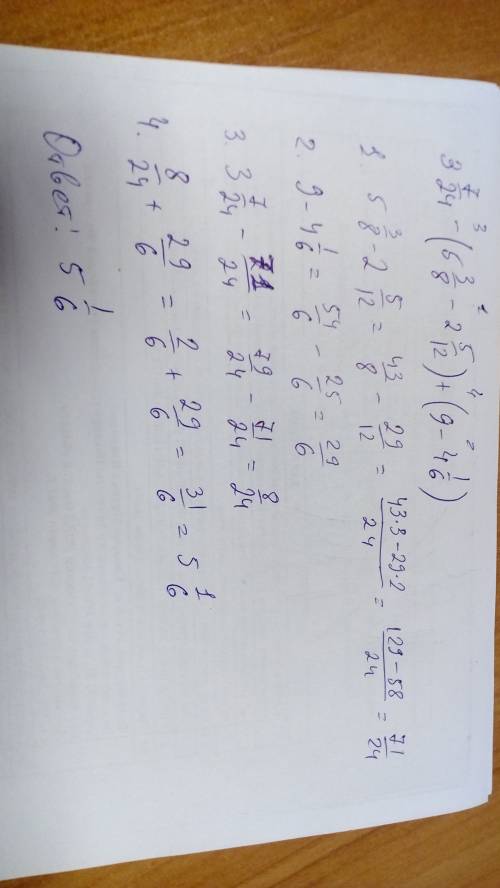 3 7/24 - (5 3/8 - 2 5/12) + (9 - 4 1/6)
1. 5 3/8 - 2 5/12 = 43/8 - 29/12 = 43·3-29·2/24 = 129-58/24 = 71/24
2. 9 - 4 1/6 = 54/6 - 25/6 = 29/6
3. 3 7/24 - 71/24 = 79/24 - 71/24 = 8/24
4. 8/24 + 29/6 = 2/6 + 29/6 = 31/6 = 5 1/6
Ответ: 5 1/6